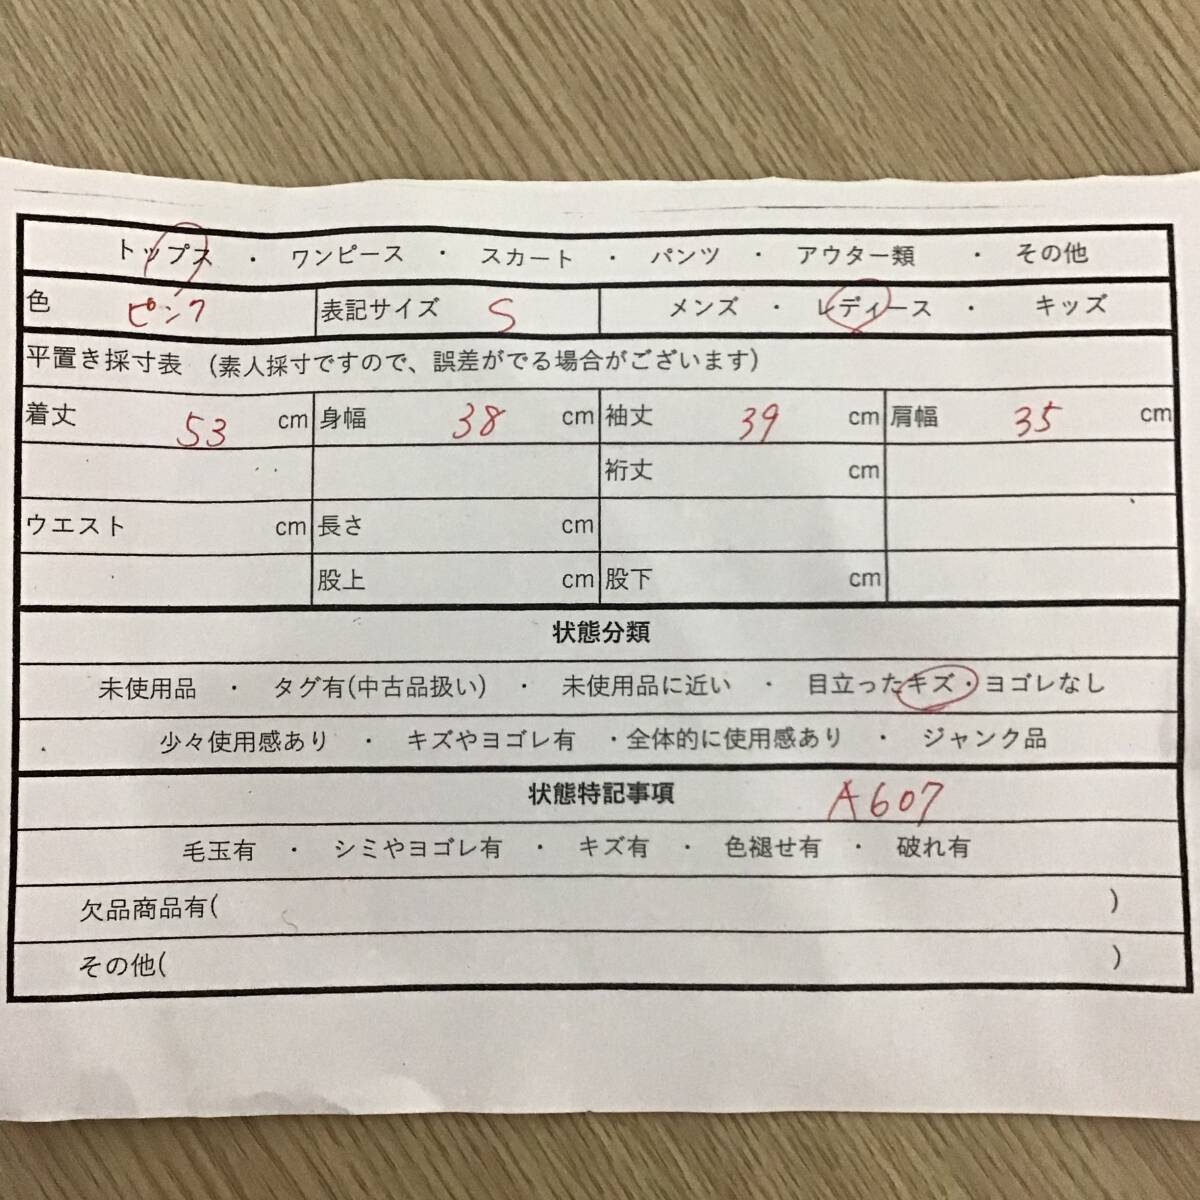 トップス ・ ワンピース ・ スカート ・ パンツ ・ アウター類 ・ その他
色 ピンク 表記サイズ S メンズ ・ レディース ・ キッズ
平置き採寸表 (素人採寸ですので、誤差がでる場合がございます)
着丈 53 cm 身幅 38 cm 袖丈 39 cm 肩幅 35 cm
裄丈 cm
ウエスト cm 長さ cm
股上 cm 股下 cm
状態分類
未使用品 ・ タグ有(中古品扱い) ・ 未使用品に近い ・ 目立ったキズ・ヨゴレなし
少々使用感あり ・ キズやヨゴレ有 ・全体的に使用感あり ・ ジャンク品
状態特記事項 A607
毛玉有 ・ シミやヨゴレ有 ・ キズ有 ・ 色褪せ有 ・ 破れ有
欠品商品有( )
その他( )